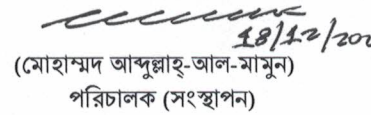 18/12/202
(মোহাম্মদ আব্দুল্লাহ্-আল-মামুন)
পরিচালক (সংস্থাপন)